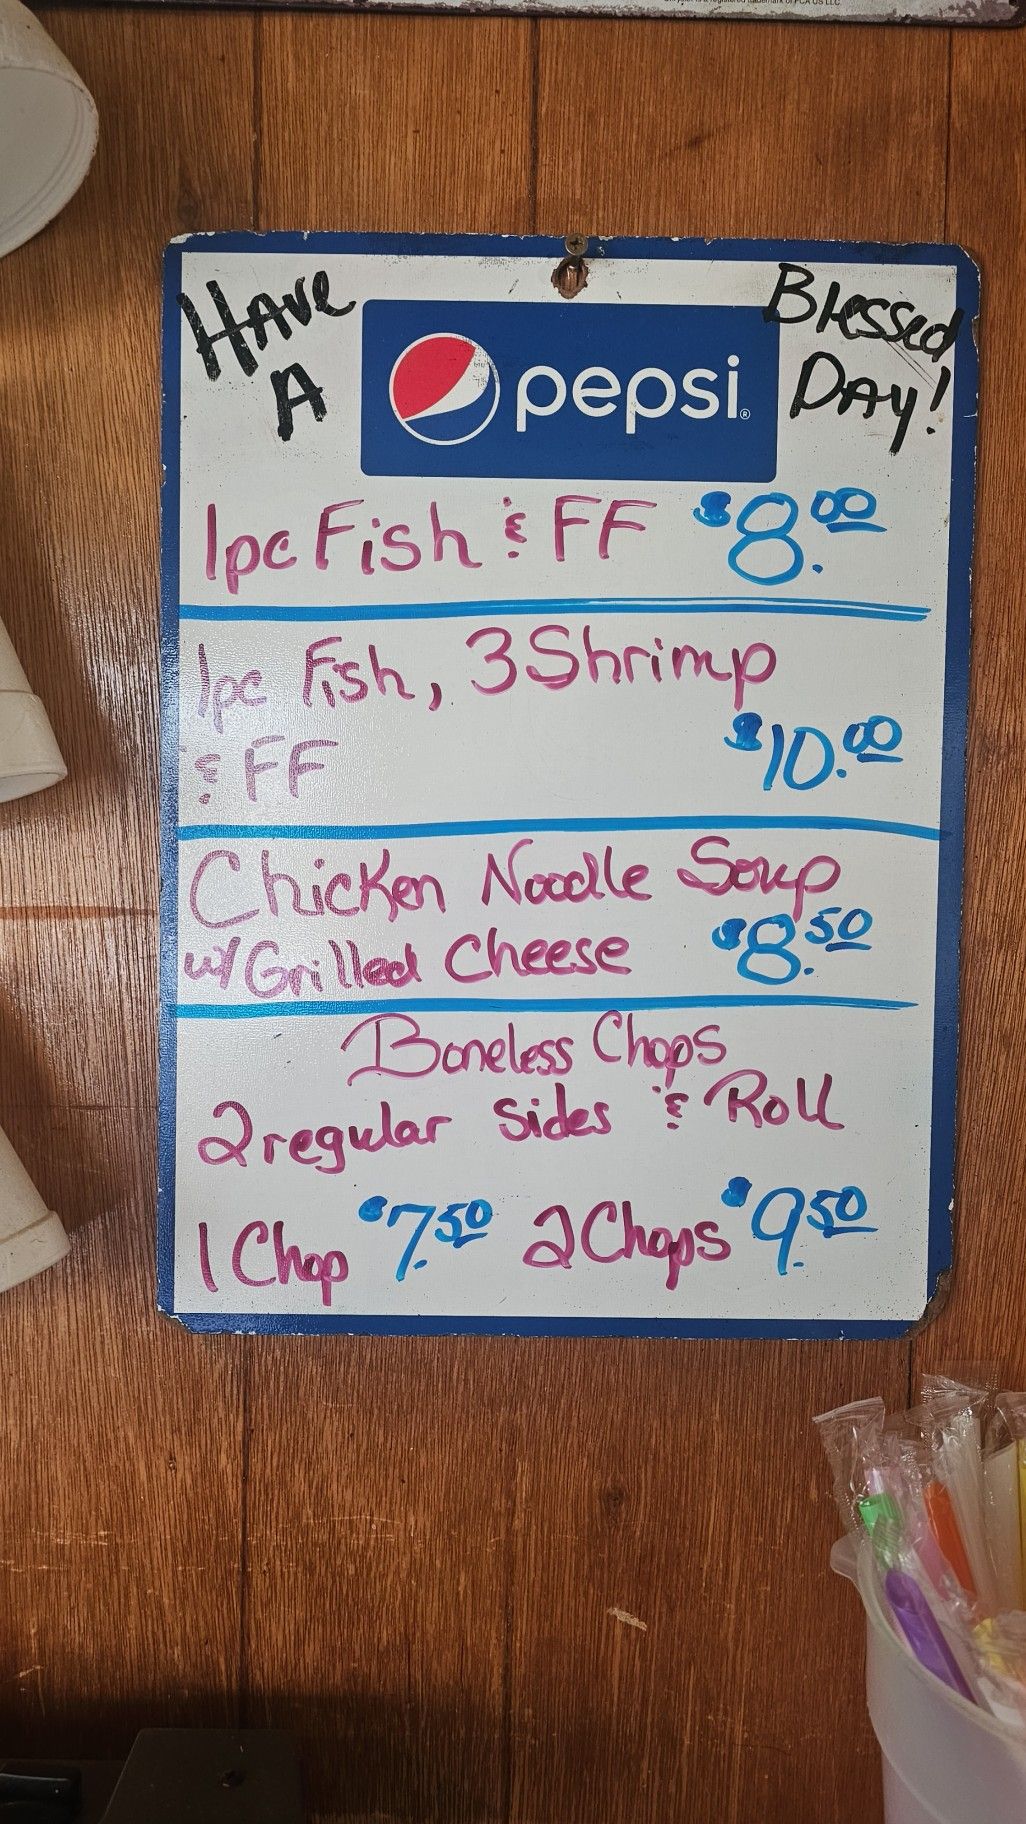 Have A
Blessed Day!
pepsi®
1pc Fish & FF $8.00
1pc Fish, 3 Shrimp
& FF $10.00
Chicken Noodle Soup
w/ Grilled Cheese $8.50
Boneless Chops
2 regular sides & Roll
1 Chop $7.50 2 Chops $9.50